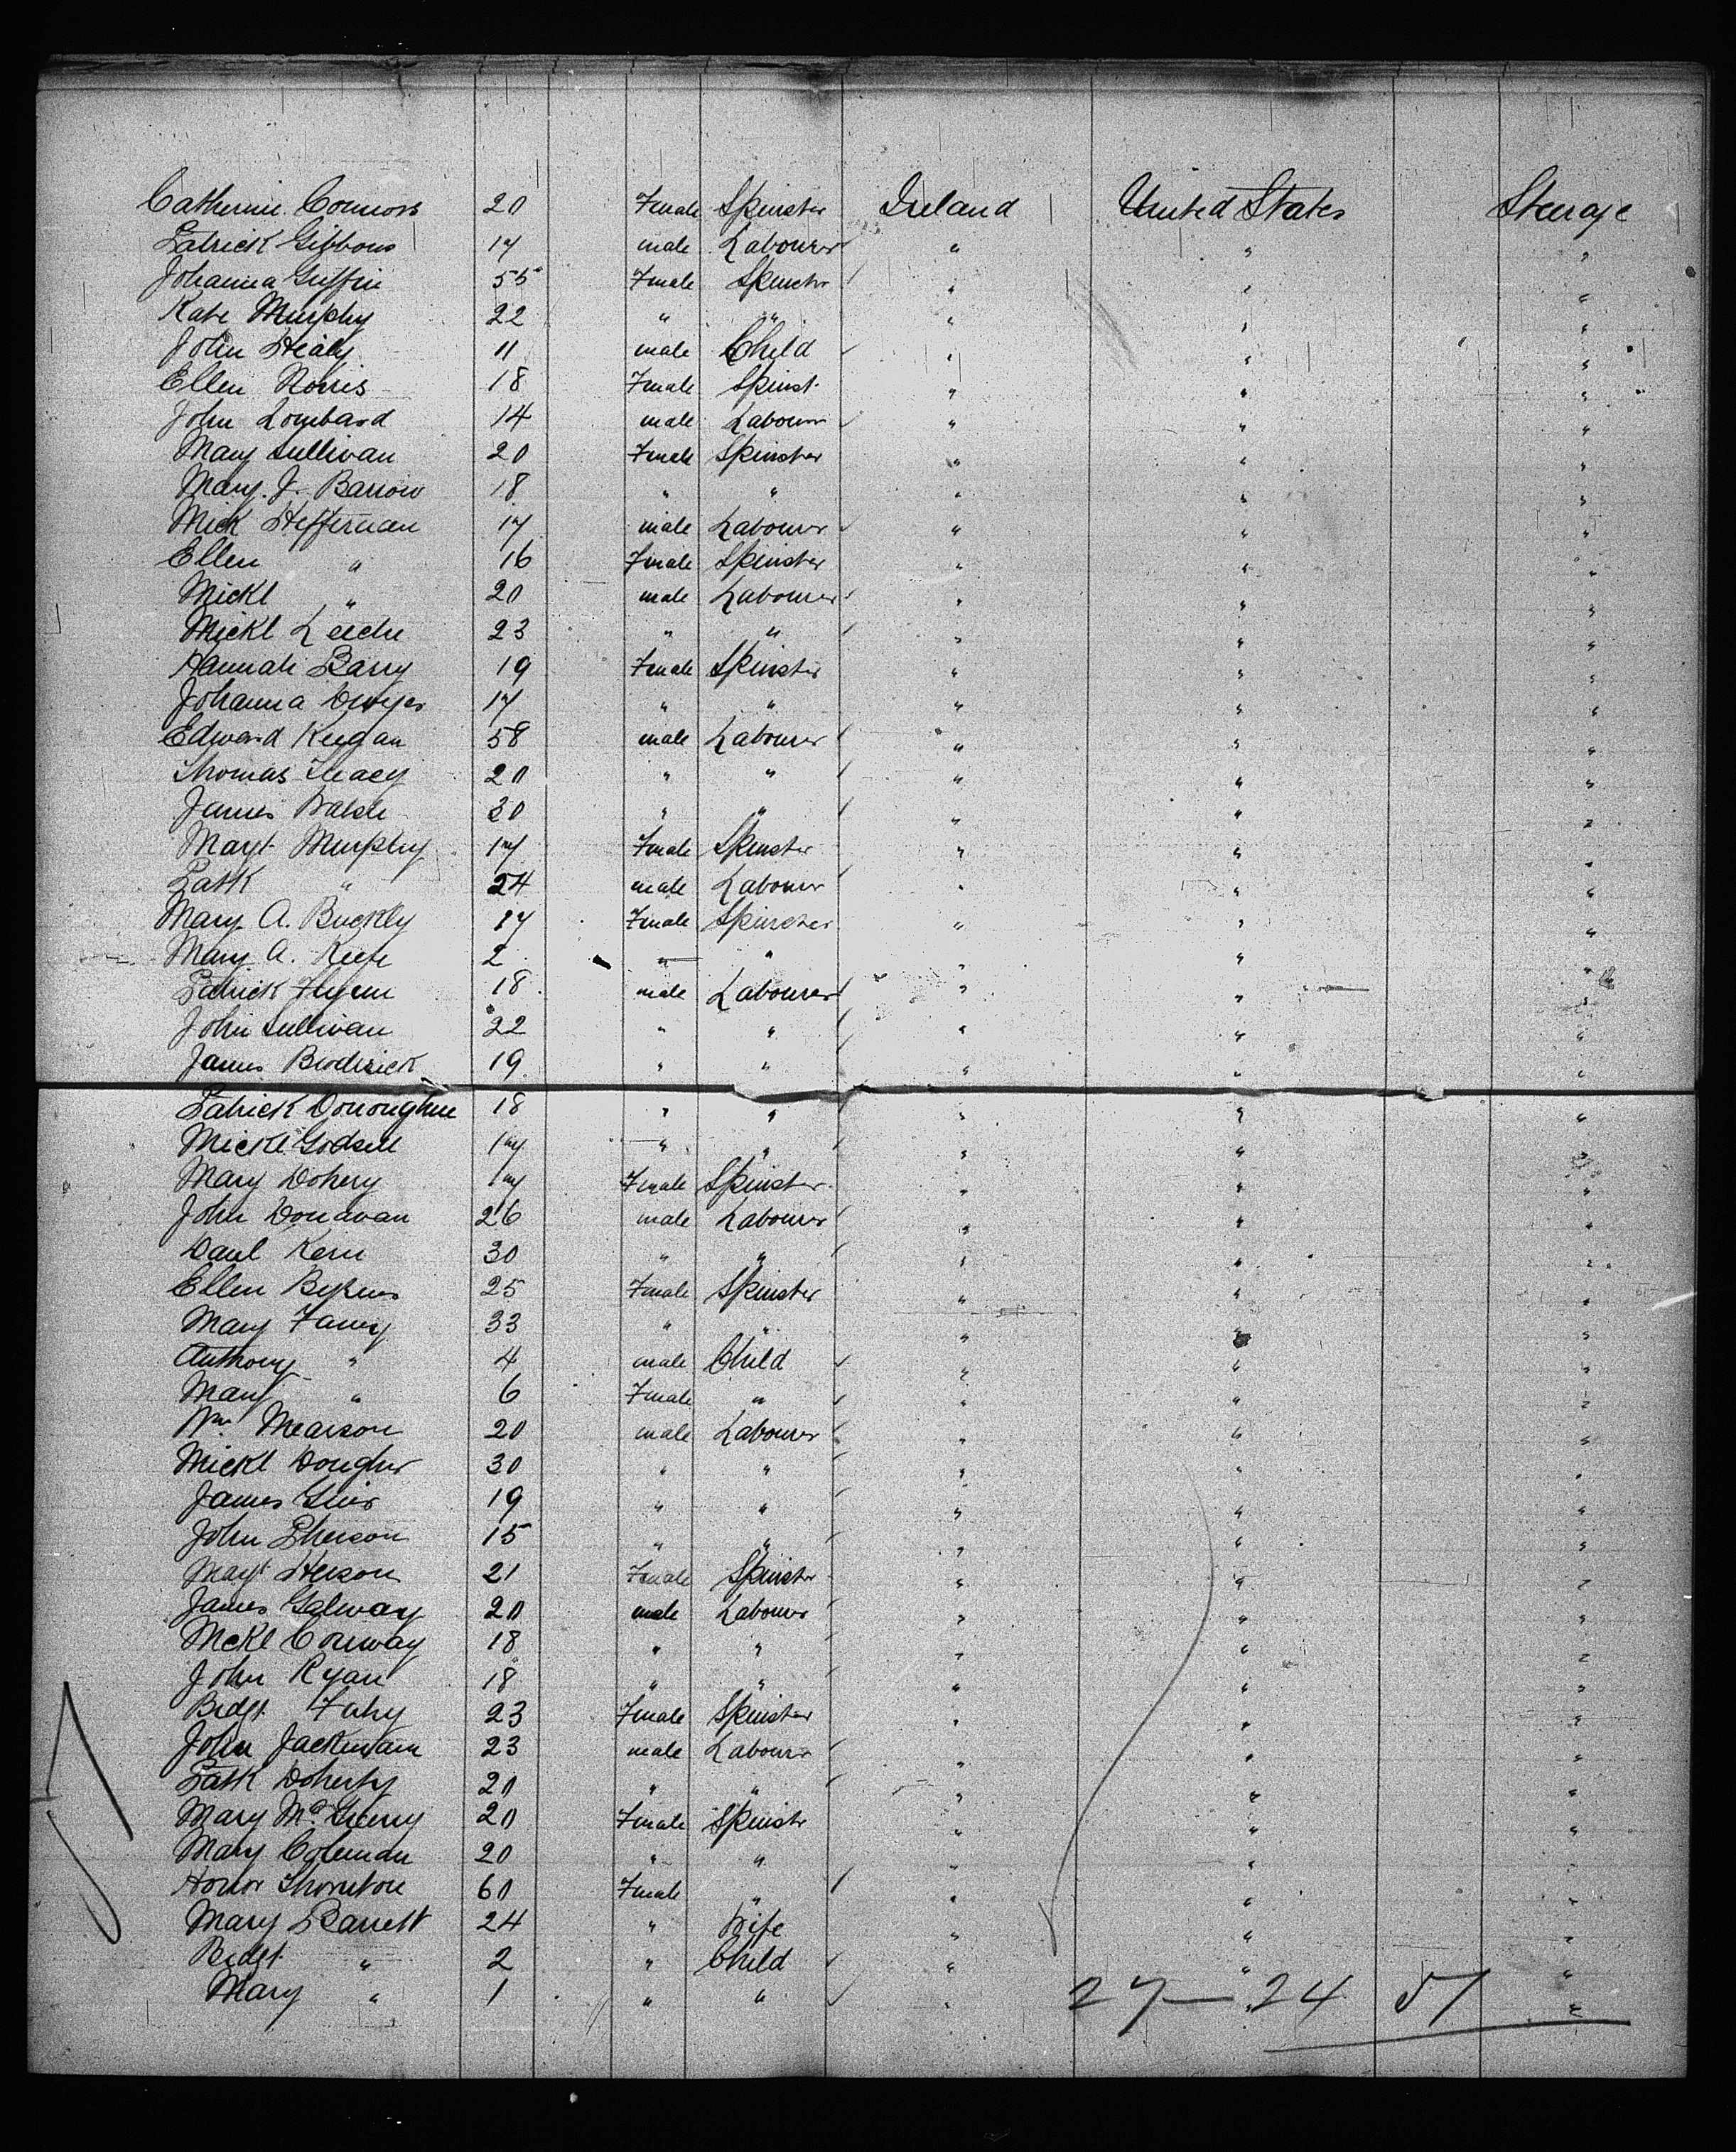 Catherine Connors 20 Female Spinster Ireland United States Steerage
Patrick Gibbons 17 male Labourer " " "
Johanna Griffin 55 Female Spinster " " "
Kate Murphy 22 " " " " "
John Healy 11 male Child " " "
Ellen Norris 18 Female Spinst. " " "
John Lombard 14 male Labourer " " "
Mary Sullivan 20 Female Spinster " " "
Mary. J. Barrow 18 " " " " "
Mick Heffernan 17 male Labourer " " "
Ellen " 16 Female Spinster " " "
Mickl " 20 male Labourer " " "
Mickl 23 " " " " "
Hannah Barry 19 Female Spinster " " "
Johanna Dwyer 17 " " " " "
Edward Keegan 58 male Labourer " " "
Thomas Treacy 20 " " " " "
James Walsh 30 " " " " "
Margt Murphy 17 Female Spinster " " "
Patk " 24 male Labourer " " "
Mary A. Buckly 17 Female Spinster " " "
Mary A. Keefe 2 " " " " "
Patrick Flynn 18 male Labourer " " "
John Sullivan 22 " " " " "
James Broderick 19 " " " " "
Patrick Donoughue 18 " " " " "
Mickl Godsell 17 " " " " "
Mary Dohery 17 Female Spinster " " "
John Donavan 26 male Labourer " " "
Danl Kern 30 " " " " "
Ellen 25 Female Spinster " " "
Mary Fahey 33 " " " " "
Anthony " 4 male Child " " "
Mary " 6 Female " " " "
Wm. Mearson 20 male Labourer " " "
Mickl Dougher 30 " " " " "
James 19 " " " " "
John 15 " " " " "
Margt 21 Female Spinster " " "
James Galway 20 male Labourer " " "
Mckl Conway 18 " " " " "
John Ryan 18 " " " " "
Bridgt. Fahy 23 Female Spinster " " "
John 23 male Labourer " " "
Patk Doherty 20 " " " " "
Mary 20 Female Spinstr " " "
Mary Coleman 20 " " " " "
Honor Thornton 60 Female " " " "
Mary Barrett 24 " Wife " " "
Bridgt. " 2 " Child " " "
Mary " 1 " " " " "
27 — 24 51